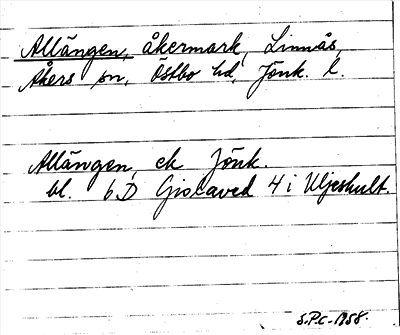 Allängen, åkermark, Linnås,
Åkers sn, Östbo hd, Jönk. l.
Allängen, ek Jönk.
bl. 6D Gislaved 4 i Uljeshult.
S.P.C-1958.